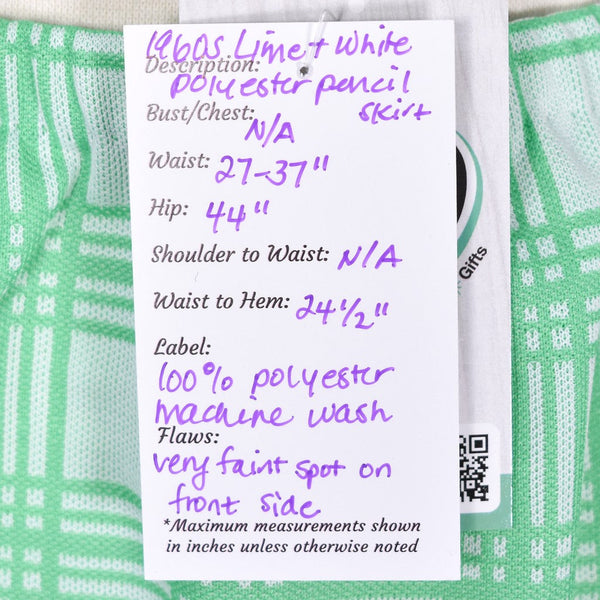 1960s Lime + White
Description:
polyester pencil
skirt
Bust/Chest:
N/A
Waist: 27-37"
Hip: 44"
Shoulder to Waist: N/A
Waist to Hem: 24 1/2"
Label:
100% polyester
machine wash
Flaws:
very faint spot on
front side
*Maximum measurements shown
in inches unless otherwise noted
Gifts